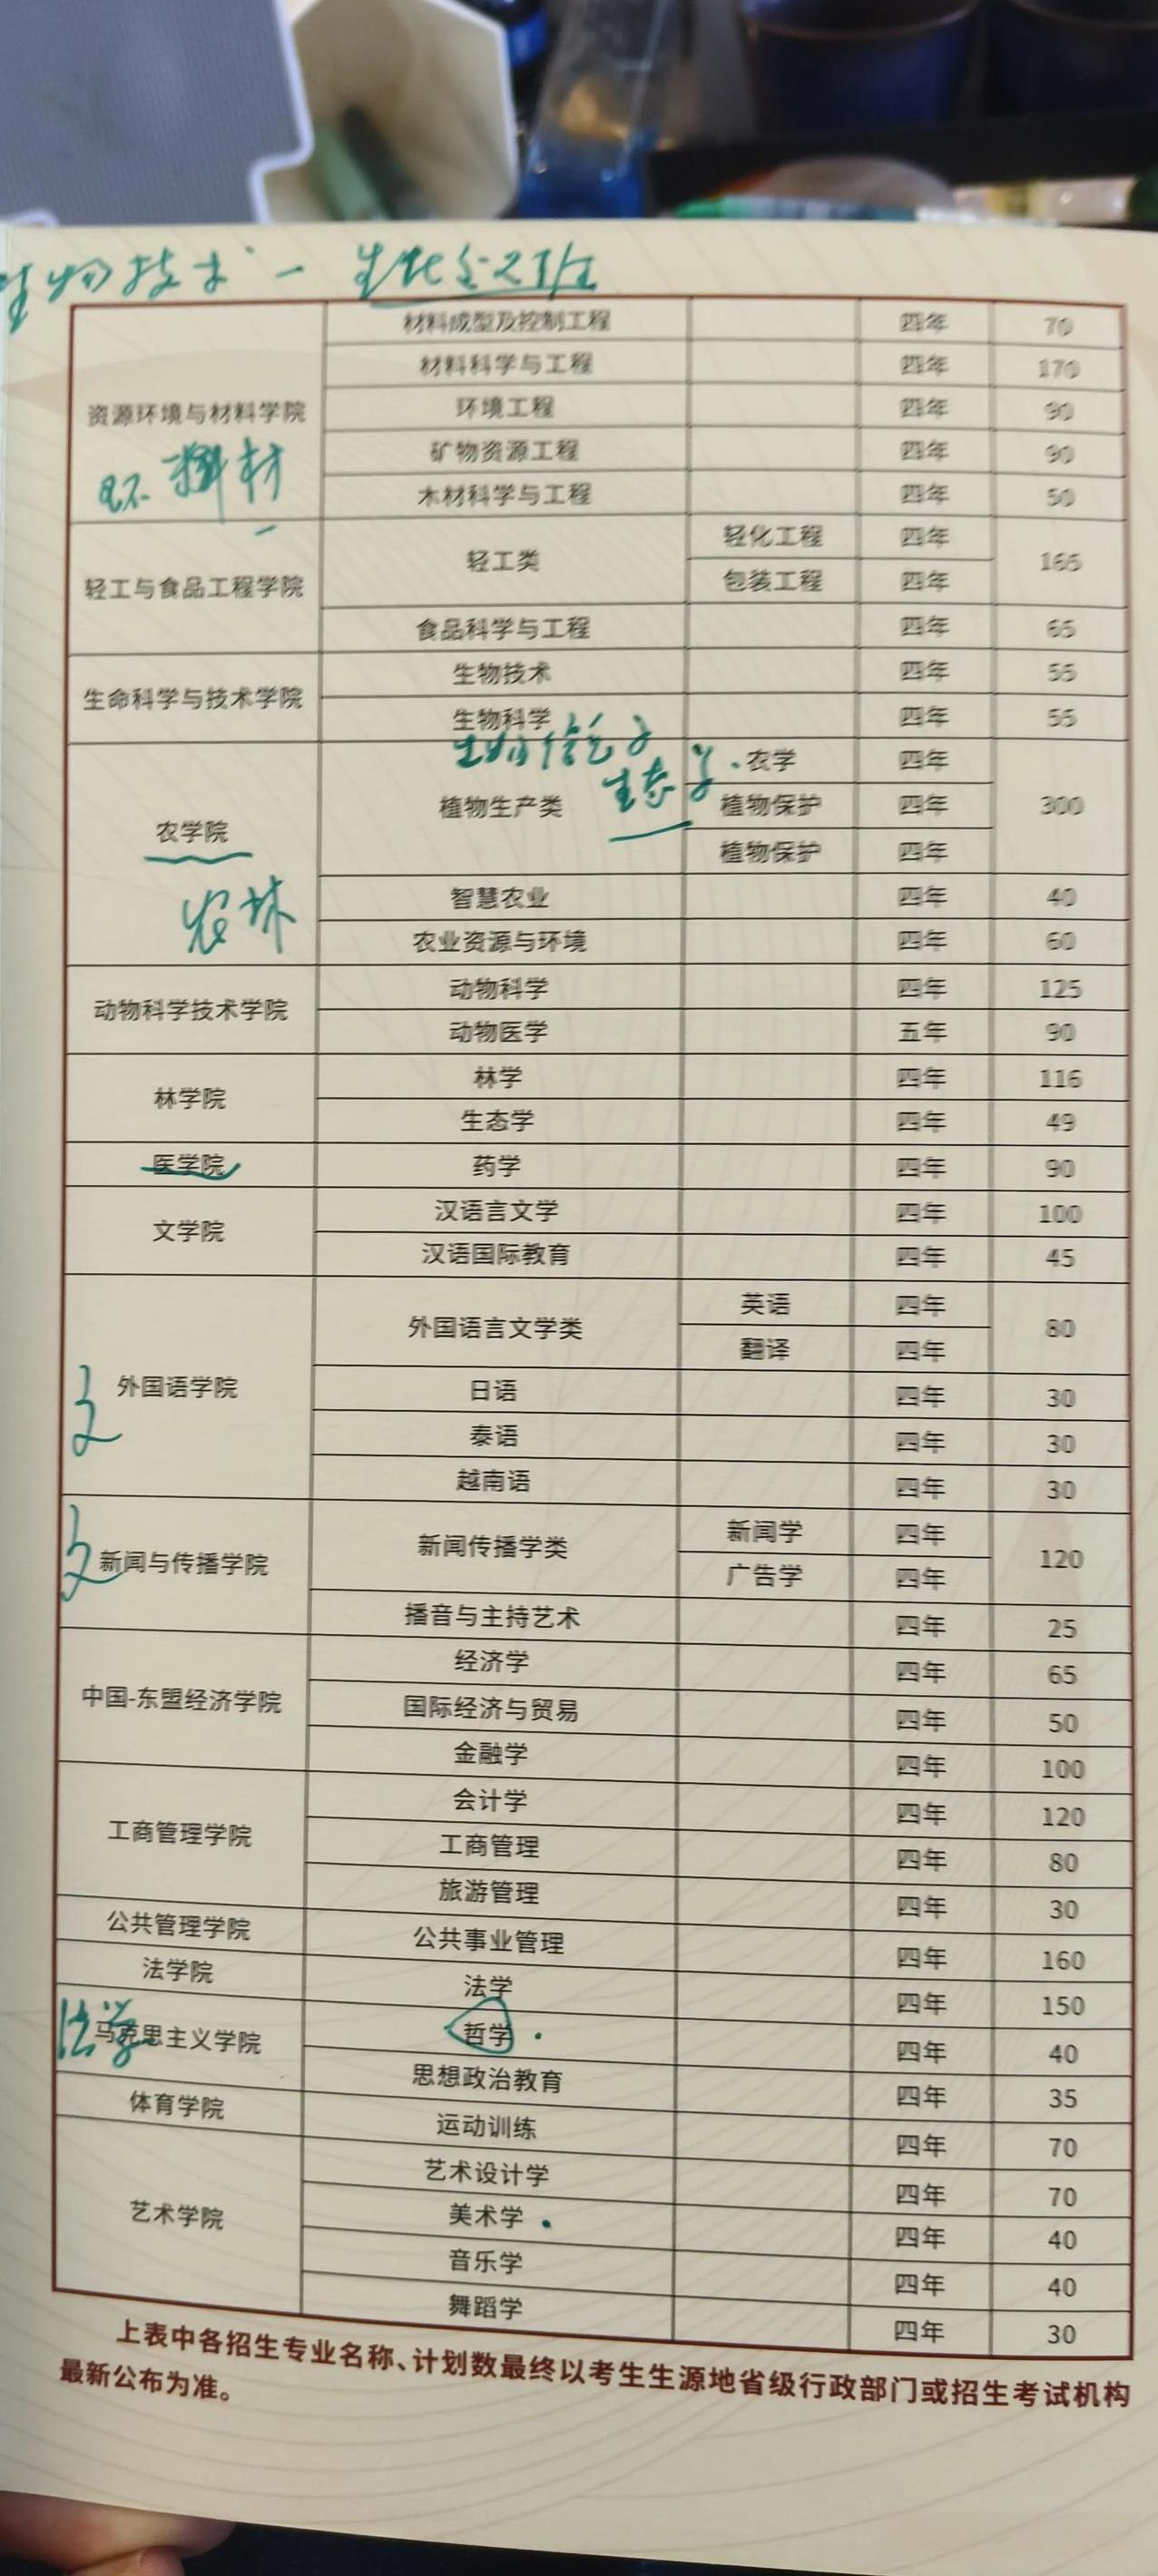 生物技术 一 生化全卓班
资源环境与材料学院 材料成型及控制工程 四年 70
材料科学与工程 四年 170
环境工程 四年 90
矿物资源工程 四年 90
木材科学与工程 四年 50
环 材
轻工与食品工程学院 轻工类 轻化工程 四年 165
包装工程 四年
食品科学与工程 四年 65
生命科学与技术学院 生物技术 四年 55
生物科学 四年 55
生物信息学
生态学
农学院 植物生产类 农学 四年 300
植物保护 四年
植物保护 四年
农林
智慧农业 四年 40
农业资源与环境 四年 60
动物科学技术学院 动物科学 四年 125
动物医学 五年 90
林学院 林学 四年 116
生态学 四年 49
医学院 药学 四年 90
文学院 汉语言文学 四年 100
汉语国际教育 四年 45
外国语学院 外国语言文学类 英语 四年 80
翻译 四年
日语 四年 30
泰语 四年 30
越南语 四年 30
新闻与传播学院 新闻传播学类 新闻学 四年 120
广告学 四年
播音与主持艺术 四年 25
中国-东盟经济学院 经济学 四年 65
国际经济与贸易 四年 50
金融学 四年 100
工商管理学院 会计学 四年 120
工商管理 四年 80
旅游管理 四年 30
公共管理学院 公共事业管理 四年 160
法学院 法学 四年 150
法学
马克思主义学院 哲学 四年 40
思想政治教育 四年 35
体育学院 运动训练 四年 70
艺术学院 艺术设计学 四年 70
美术学 四年 40
音乐学 四年 40
舞蹈学 四年 30
上表中各招生专业名称、计划数最终以考生生源地省级行政部门或招生考试机构
最新公布为准。